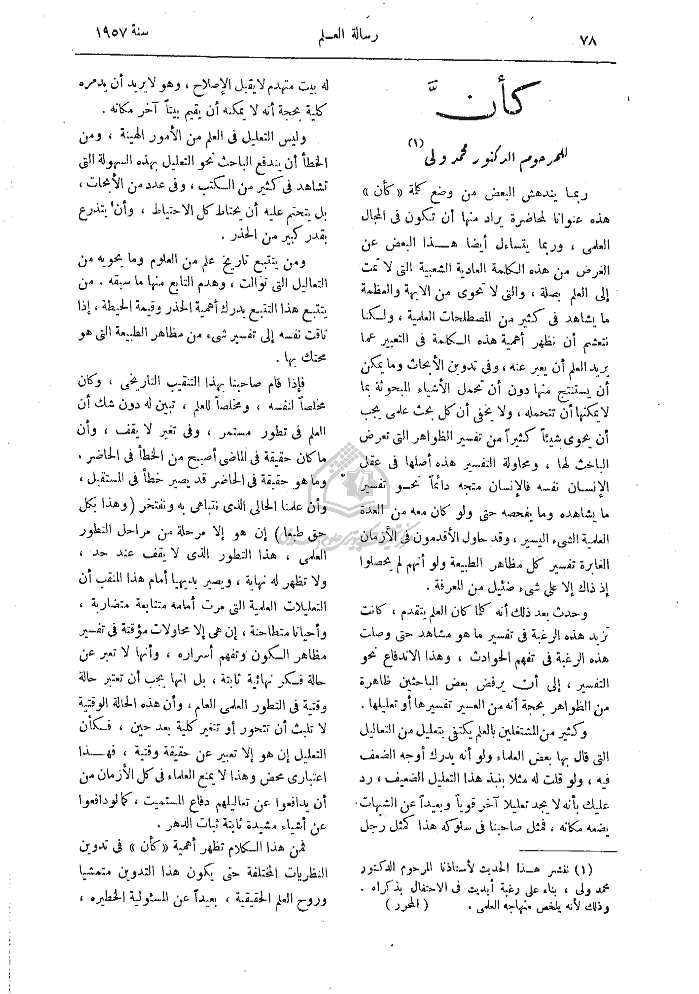 ٧٨
رسالة العـلم
سنة ١٩٥٧
كأنَّ
للمرحوم الدكتور محمد ولى (١)
ربما يندهش البعض من وضع كلمة «كأن»
هذه عنوانا لمحاضرة يراد منها أن تكون فى المجال
العلمى ، وربما يتساءل أيضا هــذا البعض عن
الغرض من هذه الكلمة العادية الشعبية التى لا تمت
إلى العلم بصلة ، والتى لا تحوى من الابهة والعظمة
ما يشاهد فى كثير من المصطلحات العلمية ، ولسكنا
نتعشم أن نظهر أهمية هذه السكلمة فى التعبير عما
يريد العلم أن يعبر عنه ، وفى تدوين الأبحاث وما يمكن
أن يستنتج منها دون أن تحمل الأشياء المبحوثة بما
لا يمكنها أن تتحمله ، ولا يخفى أن كل بحث علمى يجب
أن يحوى شيئاً كثيراً من تفسير الظواهر التى تعرض
الباحث لها ، ومحاولة التفسير هذه أصلها فى عقل
الإنسـان نفسه فالإنسان متجه دائماً نحـو تفسير
ما يشاهده وما يفحصه حتى ولو كان معه من العدة
العلمية الشىء اليسير ، وقد حاول الأقدمون فى الأزمان
الغابرة تفسير كل مظاهر الطبيعة ولو أنهم لم يحصلوا
إذ ذاك إلا على شىء ضئيل من المعرفة .
وحدث بعد ذلك أنه كلما كان العلم يتقدم ، كانت
تزيد هذه الرغبة فى تفسير ما هو مشاهد حتى وصلت
هذه الرغبة فى تفهم الحوادث ، وهذا الاندفاع نحو
التفسير ، إلى أن يرفض بعض الباحثين ظاهرة
من الظواهر بحجة أنه من العسير تفسيرها أو تعليلها .
وكثير من المشتغلين بالعلم يكتفى بتعليل من التعاليل
التى قال بها بعض العلماء ولو أنه يدرك أوجه الضعف
فيه ، ولو قلت له مثلا بنبذ هذا التعليل الضعيف ، رد
عليك بأنه لا يجد تعليلا آخر قوياً وبعيداً عن الشبهات
يضعه مكانه ، فمثل صاحبنا فى سلوكه هذا كمثل رجل
(١) نفشر هــذا الحديث لأستاذنا المرحوم الدكتور
محمد ولى ، بناء على رغبة أبديت فى الاحتفال بذكراه .
وذلك لأنه يلخص منهاجه العلمى . ( المحرر )
له بيت متهدم لا يقبل الإصلاح ، وهو لا يريد أن يدمره
كلية بحجة أنه لا يمكنه أن يقيم بيتاً آخر مكانه .
وليس التعليل فى العلم من الأمور الهينة ، ومن
الخطأ أن يندفع الباحث نحو التعليل بهذه السهولة التى
تشاهد فى كثير من السكتب ، وفى عدد من الأبحاث ،
بل يتحتم عليه أن يحتاط كل الاحتياط ، وأن يتذرع
بقدر كبير من الحذر .
ومن يتتبع تاريخ علم من العلوم وما يحويه من
التعاليل التى توالت ، وهدم التابع منها ما سبقه . من
يتتبع هذا التتبع يدرك أهمية الحذر وقيمة الحيطة ، إذا
تاقت نفسه إلى تفسير شىء من مظاهر الطبيعة التى هو
محتك بها .
فإذا قام صاحبنا بهذا التنقيب التاريخى ، وكان
مخلصاً لنفسه ، ومخلصاً للعلم ، تبين له دون شك أن
العلم فى تطور مستمر ، وفى تغير لا يقف ، وأن
ما كان حقيقة فى الماضى أصبح من الخطأ فى الحاضر .
وما هو حقيقة فى الحاضر قد يصير خطأ فى المستقبل ،
وأن علمنا الحالى الذى نتباهى به ونفتخر ( وهذا بكل
حق طبعا ) إن هو إلا مرحلة من مراحل التطور
العلمى ، هذا التطور الذى لا يقف عند حد ،
ولا تظهر له نهاية ، ويصير بديهيا أمام هذا المنقب أن
التعليلات العلمية التى مرت أمامه متتابعة متضاربة ،
وأحيانا متطاحنة ، إن هى إلا محاولات مؤقتة فى تفسير
مظاهر السكون وتفهم أسراره ، وأنها لا تعبر عن
حالة فـكر نهائية ثابتة ، بل انها يجب أن تعتبر حالة
وقتية فى التطور العلمى العام ، وأن هذه الحالة الوقتية
لا تلبث أن تتحور أو تتغير كلية بعد حين ، فـكأن
التعليل إن هو إلا تعبير عن حقيقة وقتية ، فهــذا
اعتبارى محض وهذا لا يمنع العلماء فى كل الأزمان من
أن يدافعوا عن تعاليلهم دفاع المستميت ، كما لو دافعوا
عن أشياء مشيدة ثابتة ثبات الدهر .
فمن هذا السكلام تظهر أهمية «كأن» فى تدوين
النظريات المختلفة حتى يكون هذا التدوين متمشيا
وروح العلم الحقيقية ، بعيداً عن المسئولية الخطيره ،